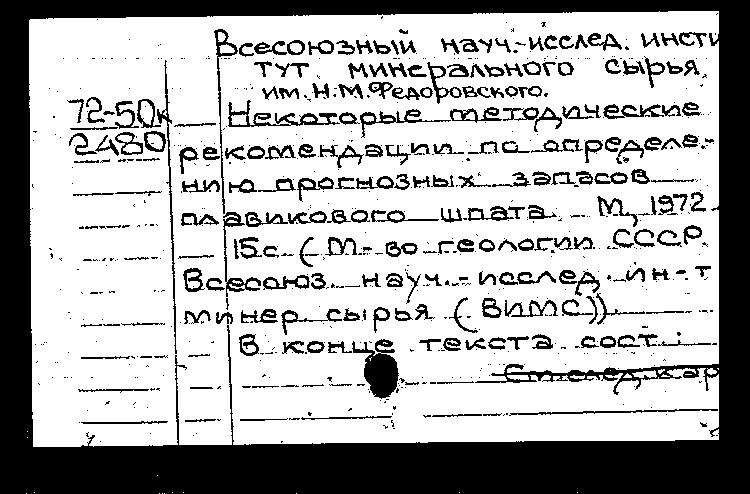 Всесоюзный науч.-исслед. инсти
тут минерального сырья
им. Н.М.Федоровского.
72-50к Некоторые методические
2480 рекомендации по определе-
нию прогнозных запасов
плавикового шпата. М, 1972
15с. (М-во геологии СССР.
Всесоюз. науч.-исслед. ин-т
минер. сырья (ВИМС)).
В конце текста сост.:
См.след.кар